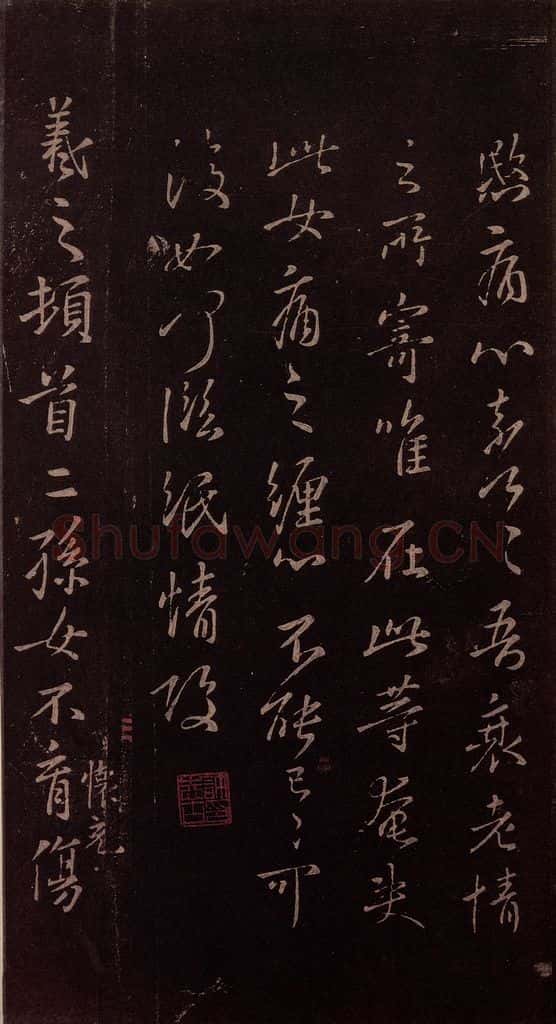 愍痛心奈何奈何吾衰老情
之所寄唯在此等奄失
此女痛之纏心不能已已可
復如何臨紙情酸
羲之頓首二孫女不育傷
懷充
Shufawang.CN